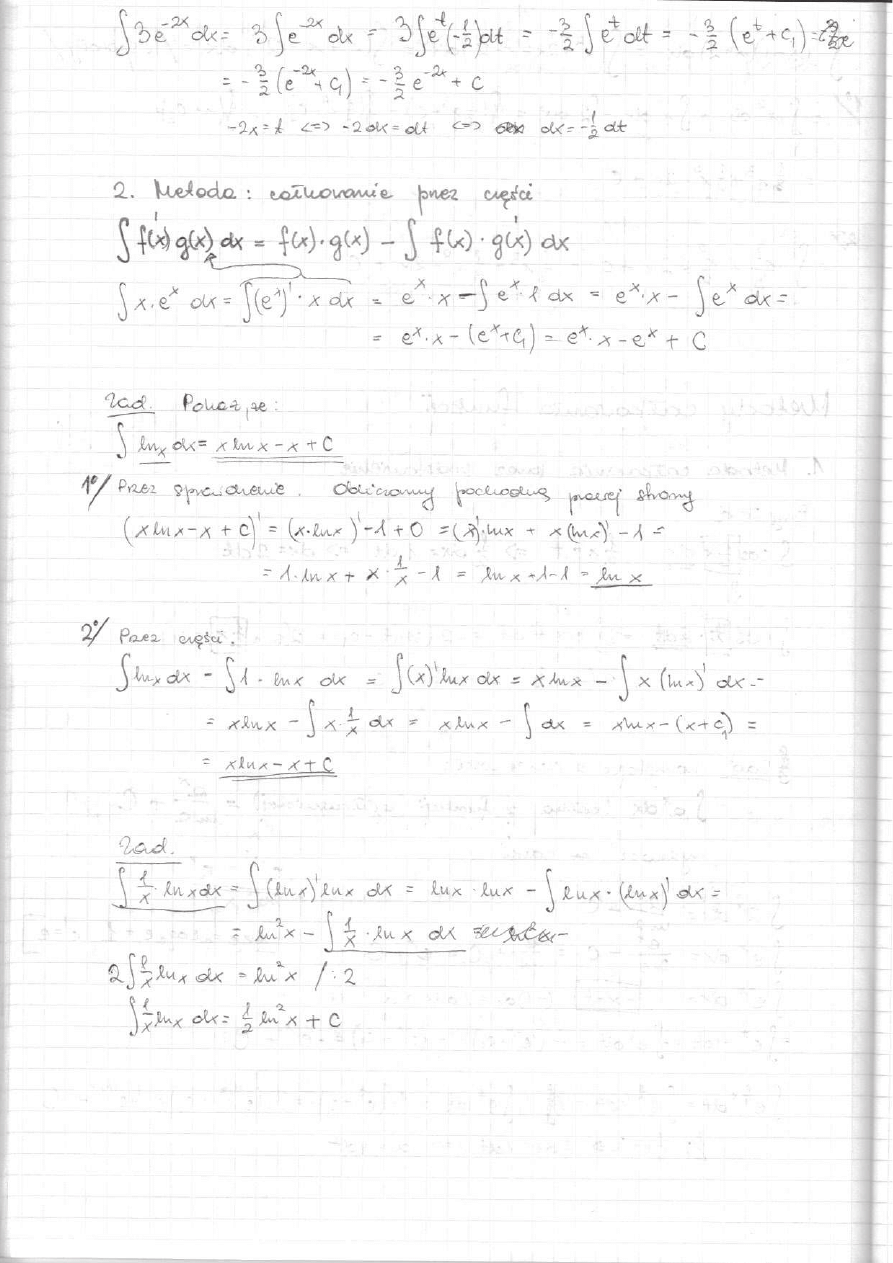 ∫3e^{-2x} dx = 3∫e^{-2x} dx = 3∫e^t(-1/2)dt = -3/2 ∫e^t dt = -3/2 (e^t + C₁) =
= -3/2 (e^{-2x} + C₁) = -3/2 e^{-2x} + C
-2x = t <=> -2dx = dt <=> dx = -1/2 dt
2. Metoda: całkowanie przez części
∫f(x)' g(x) dx = f(x)·g(x) - ∫ f(x)·g(x)' dx
∫x·e^x dx = ∫(e^x)'·x dx = e^x·x - ∫e^x·1 dx = e^x·x - ∫e^x dx =
= e^x·x - (e^x + C₁) = e^x·x - e^x + C
Zad. Pokaż, że:
∫ ln x dx = x ln x - x + C
1°/ Przez sprawdzenie. Obliczamy pochodną prawej strony
(x ln x - x + C)' = (x·ln x)' - 1 + 0 = (x)'·ln x + x(ln x)' - 1 =
= 1·ln x + x·1/x - 1 = ln x + 1 - 1 = ln x
2°/ Przez części.
∫ln x dx = ∫1·ln x dx = ∫(x)' ln x dx = x ln x - ∫x (ln x)' dx =
= x ln x - ∫x·1/x dx = x ln x - ∫dx = x ln x - (x + C₁) =
= x ln x - x + C
Zad.
∫1/x·ln x dx = ∫(ln x)' ln x dx = ln x·ln x - ∫ln x·(ln x)' dx =
= ln²x - ∫1/x·ln x dx
2∫1/x ln x dx = ln²x /:2
∫1/x ln x dx = 1/2 ln²x + C